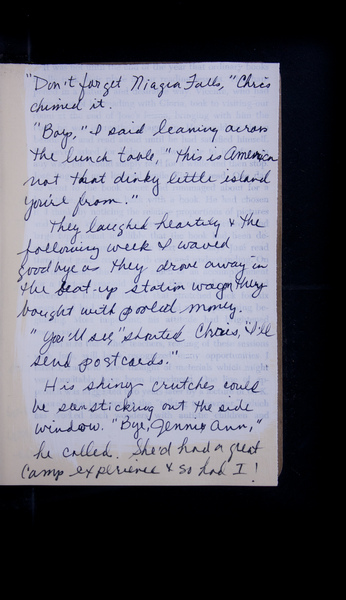 "Don't forget Niagra Falls," Chris
chimed it.
"Boys," I said leaning across
the lunch table, "this is America
not that dinky little island
you're from."
They laughed heartily & the
following week I waved
goodbye as they drove away in
the beat-up station wagon they
bought with pooled money.
"You'll see," shouted Chris, "I'll
send postcards."
His shiny crutches could
be seen sticking out the side
window. "Bye, Jenney Ann,"
he called. She'd had a great
camp experience & so had I!